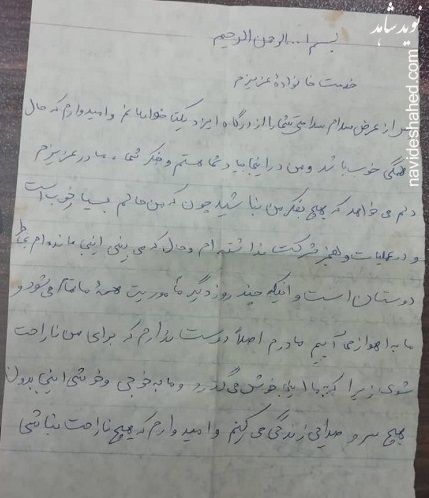 نوید شاهد
navideshahed.com
بسم ا... الرحمن الرحیم
خدمت خانوادهٔ عزیزم
پس از عرض سلام سلامتی شما را از درگاه ایزد یکتا خواهانم و امیدوارم که حال
همگی خوب باشد و من در اینجا بیاد شما هستم و فکر شما، مادر عزیزم
دلم می خواهد که هیچ بفکر من نباشید چون که من حالم بسیار خوب است
و در عملیات والفجر شرکت نداشته ام و حال که می بینی اینجا مانده ام بخاطر
دوستان است و اینکه چند روز دیگر مأموریت همهٔ ما تمام می شود و
ما به اهواز می آییم مادرم اصلاً دوست ندارم که برای من ناراحت
شوی زیرا که به ما اینجا خوش می گذرد و ما به خوبی و خوشی اینجا بدون
هیچ سر و صدایی زندگی می کنیم و امیدوارم که هیچ ناراحت نباشی